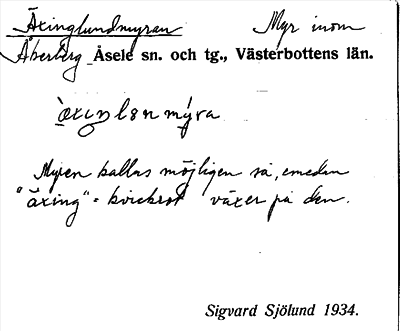 Äxinglundmyran Myr inom
Åberberg Åsele sn. och tg., Västerbottens län.
Myren kallas möjligen så, emedan
"äxing" = kvickrot växer på den.
Sigvard Sjölund 1934.